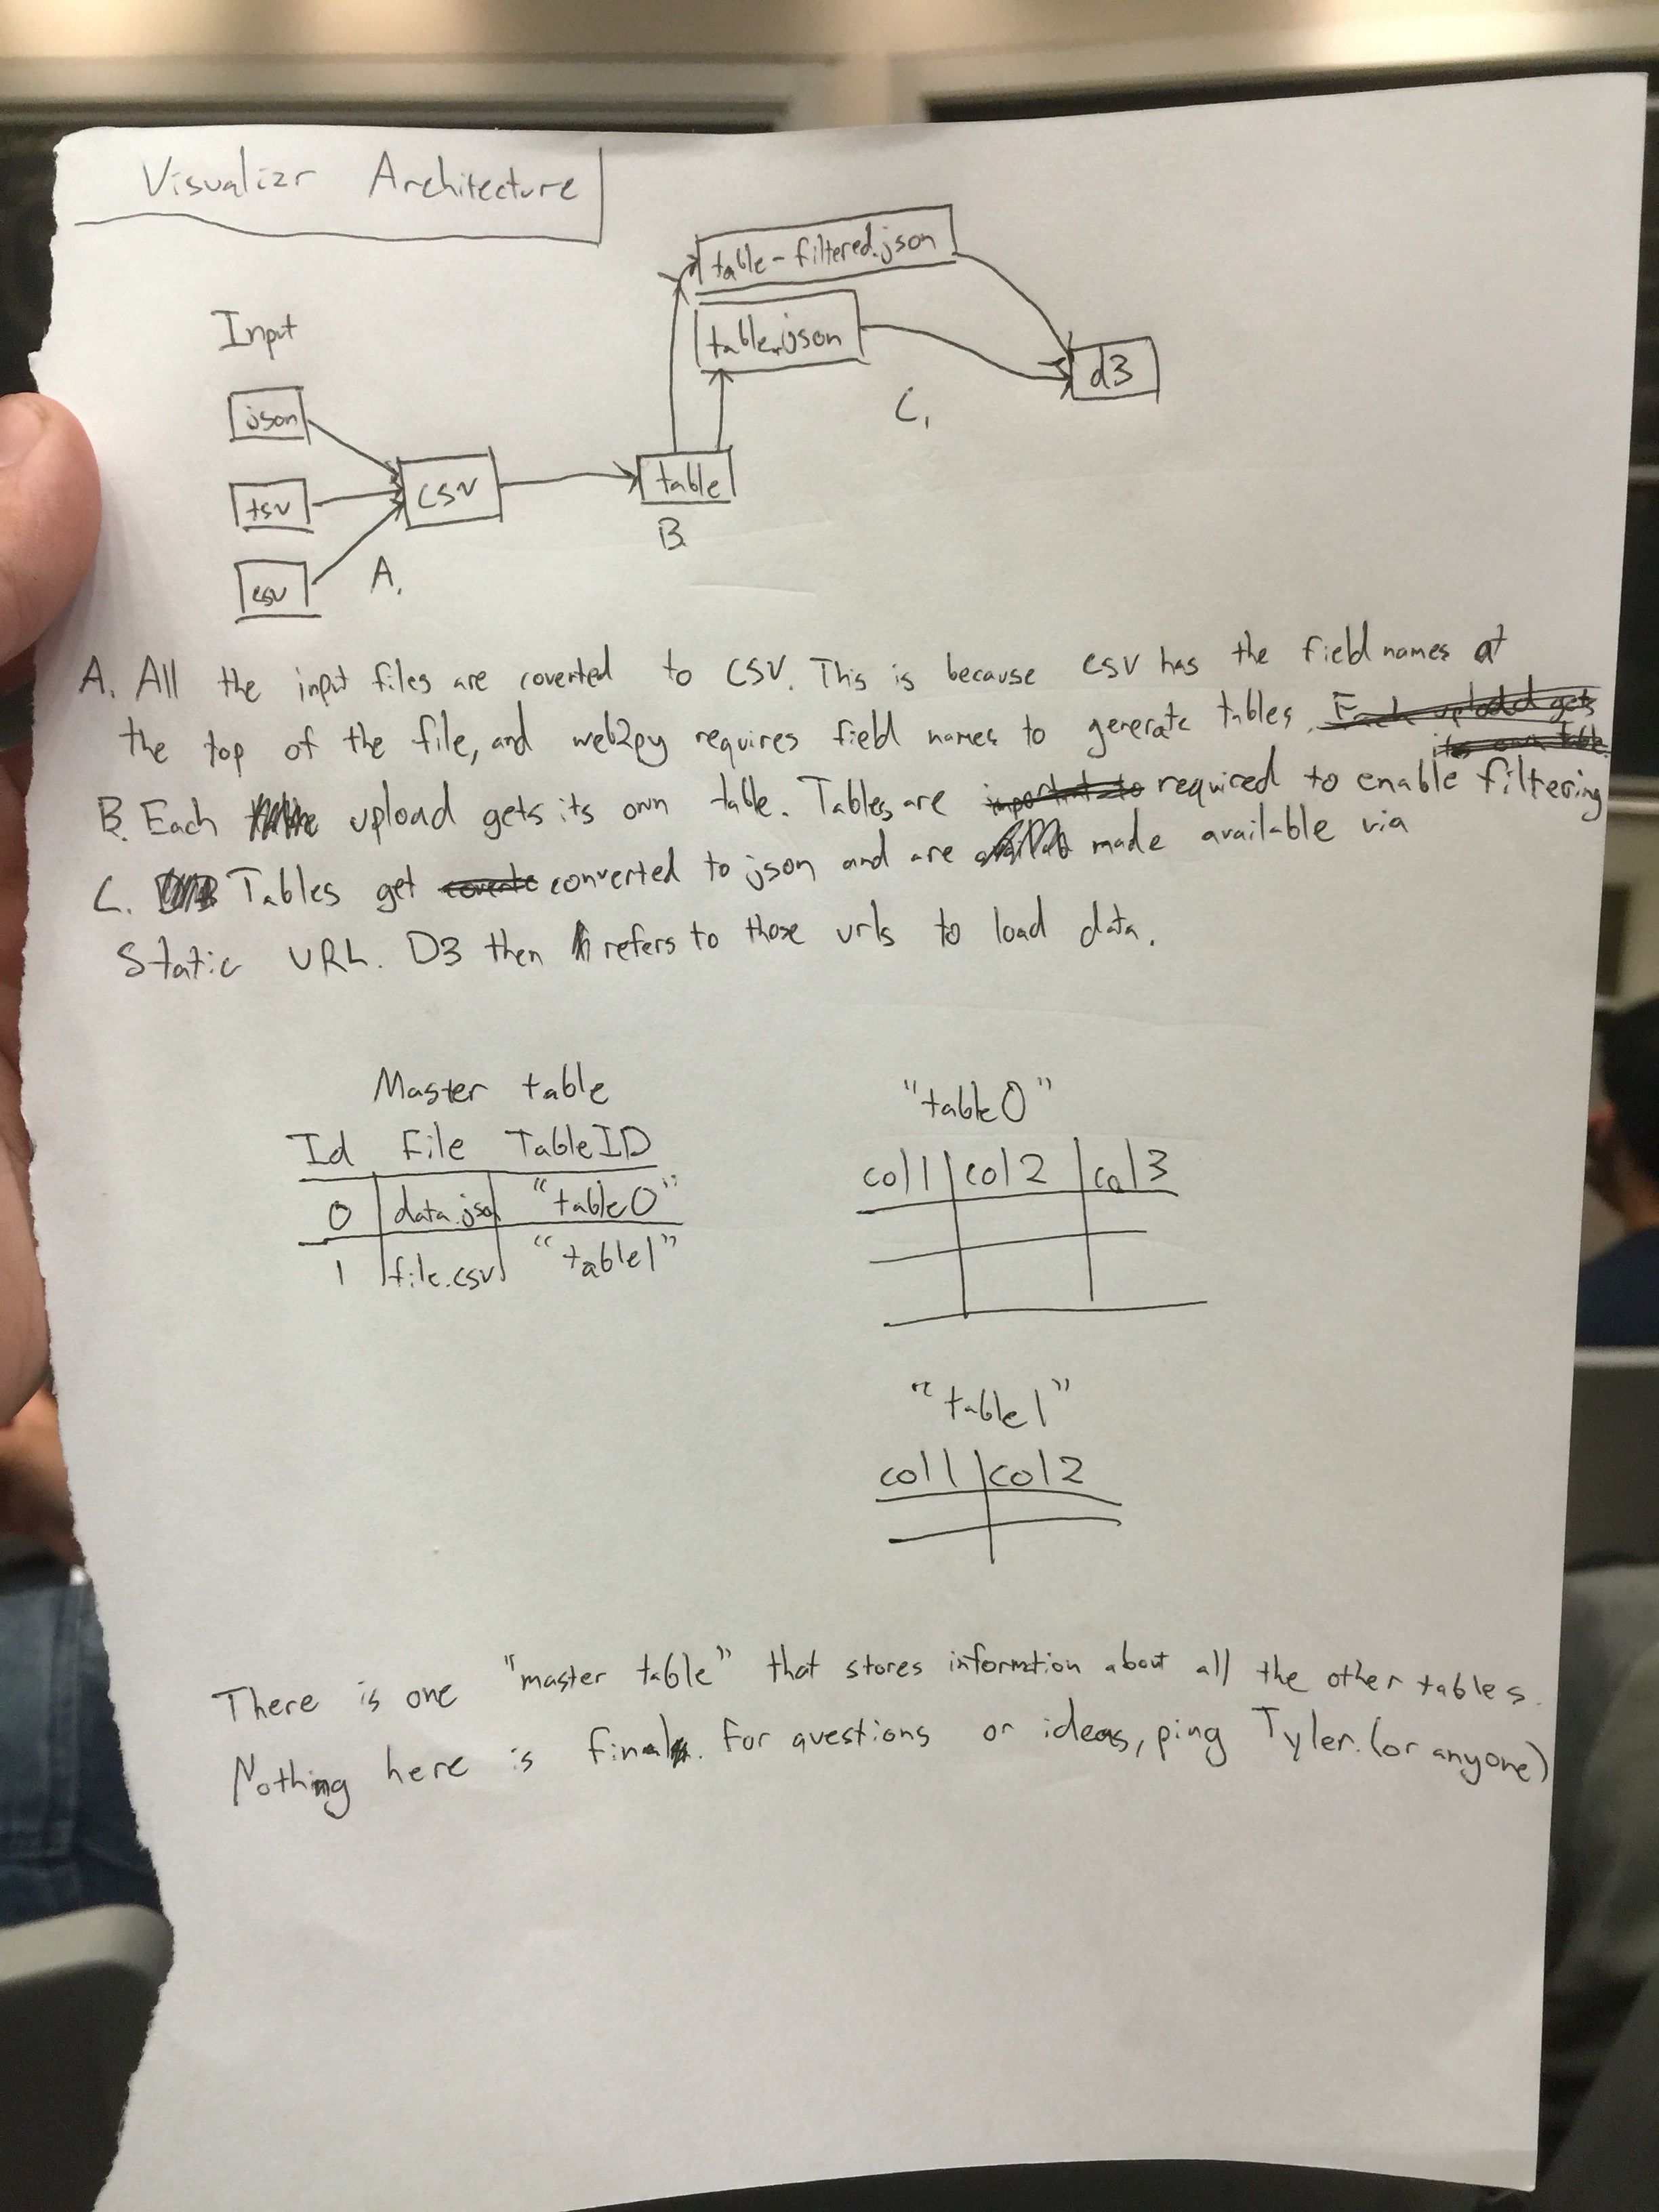 Visualizr Architecture
table-filtered.json
Input
table.json
d3
json
C.
csv
table
tsv
B
csv
A.
A. All the input files are coverted to CSV. This is because csv has the field names at
the top of the file, and web2py requires field names to generate tables. Each upload gets
its own table
B. Each upload gets its own table. Tables are important to required to enable filtering
C. Tables get coverte converted to json and are made available via
Static URL. D3 then refers to those urls to load data.
Master table
Id File TableID
0 data.json "table0"
1 file.csv "table1"
"table0"
col1 col2 col3
"table1"
col1 col2
There is one "master table" that stores information about all the other tables.
Nothing here is final. For questions or ideas, ping Tyler. (or anyone)